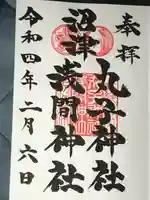 奉拝
丸子神社
沼津
浅間神社
令和四年二月六日